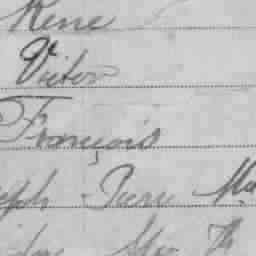 René
Victor
François
eph Pierre Ma